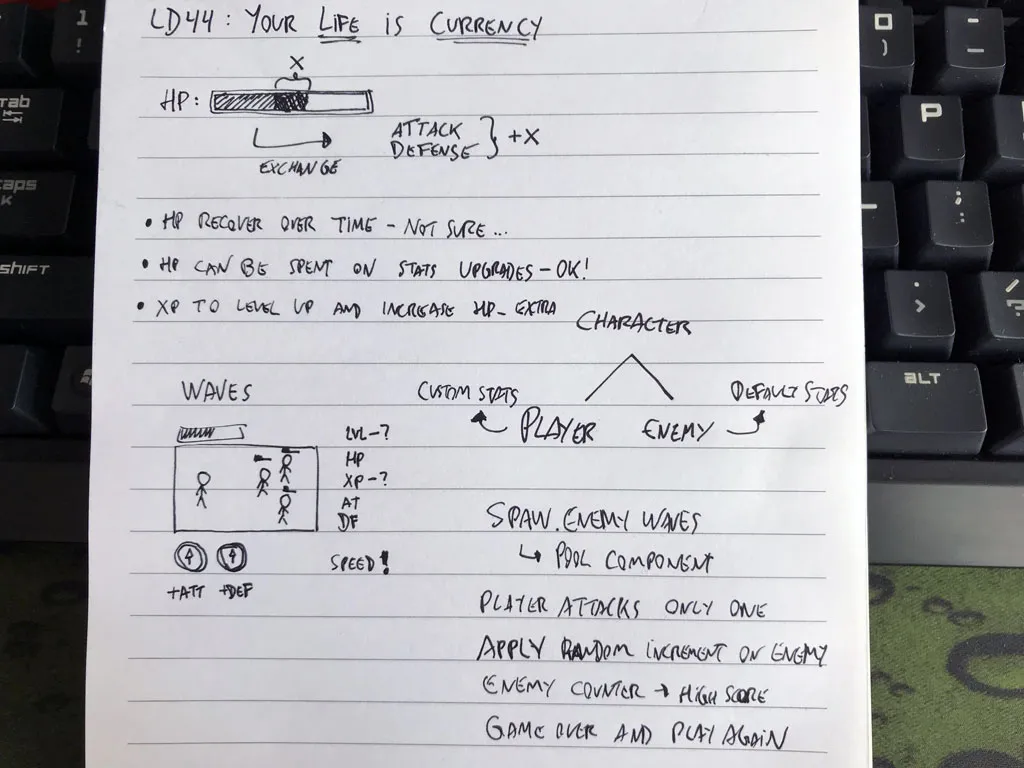 LD44: YOUR LIFE IS CURRENCY
X
HP:
ATTACK
DEFENSE
+X
EXCHANGE
• HP RECOVER OVER TIME - NOT SURE...
• HP CAN BE SPENT ON STATS UPGRADES - OK!
• XP TO LEVEL UP AND INCREASE HP - EXTRA
CHARACTER
CUSTOM STATS
DEFAULT STATS
PLAYER
ENEMY
WAVES
LVL-?
HP
XP-?
AT
DF
SPEED!
+ATT
+DEF
SPAW. ENEMY WAVES
↳ POOL COMPONENT
PLAYER ATTACKS ONLY ONE
APPLY RANDOM INCREMENT ON ENEMY
ENEMY COUNTER → HIGH SCORE
GAME OVER AND PLAY AGAIN
1
!
Tab
caps
K
SHIFT
0
)
-
P
:
;
>
.
/
?
ALT